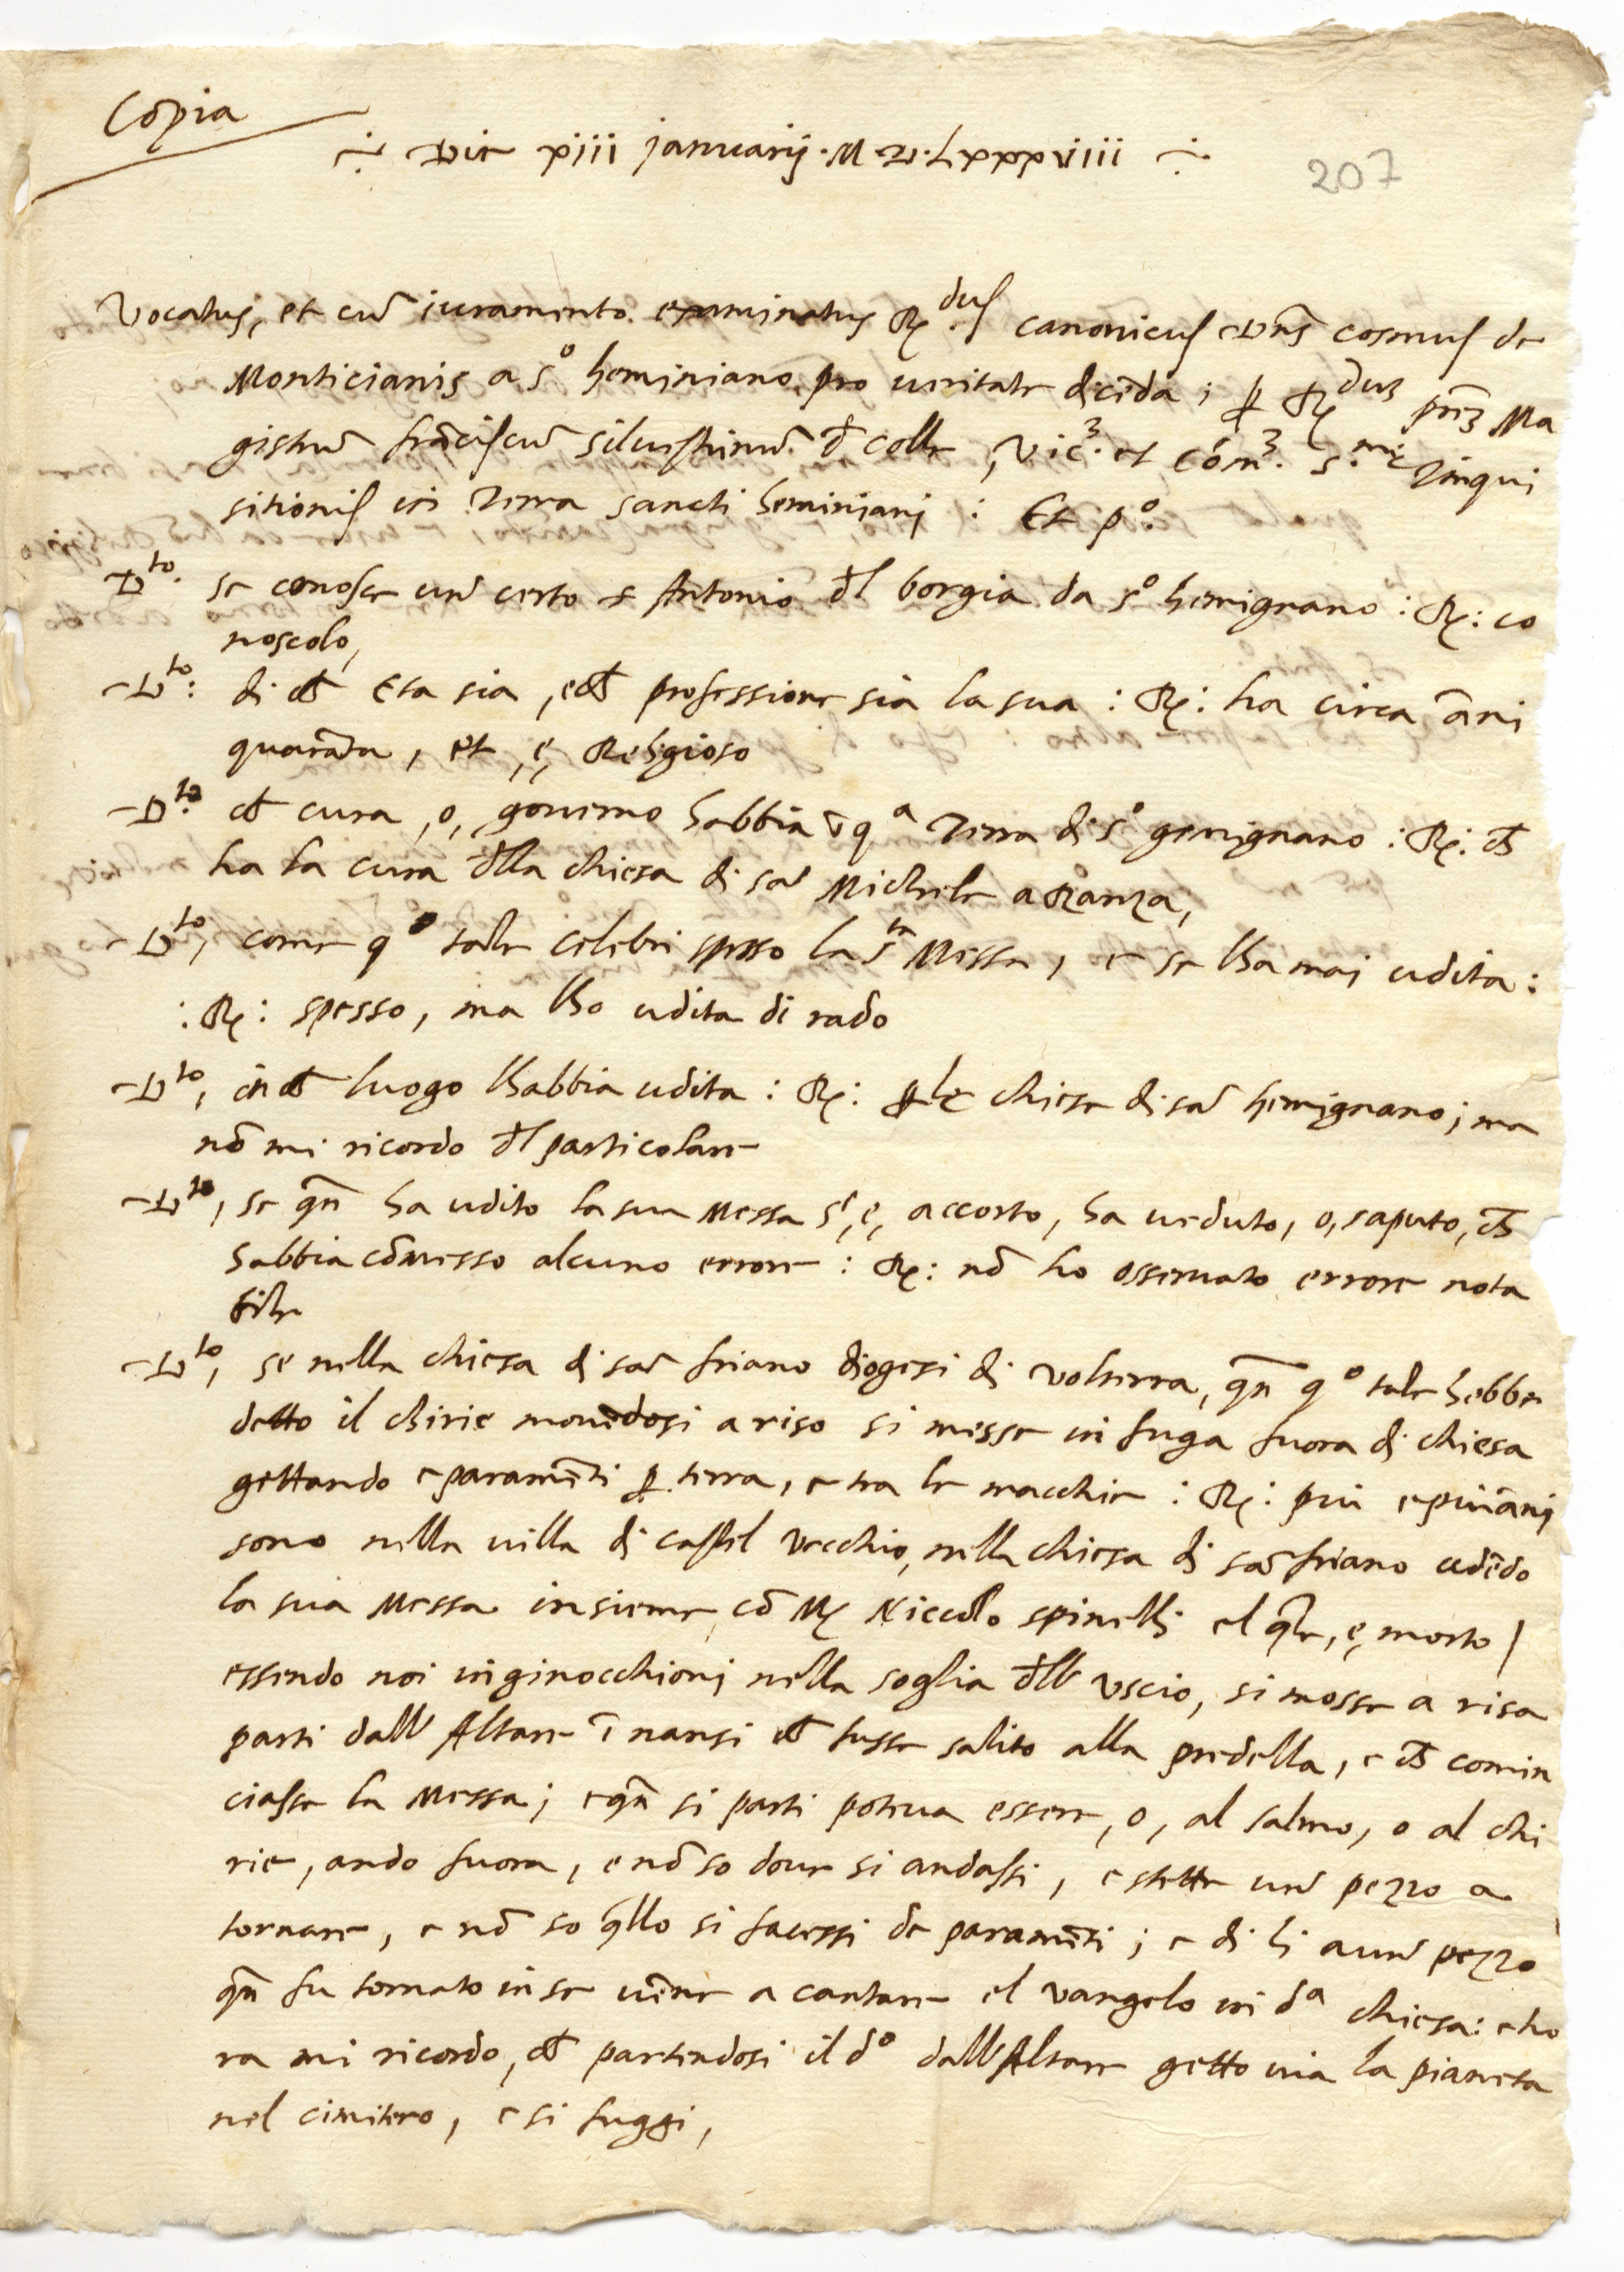 Copia
÷ Die xiii januarij · M · D · Lxxxviiii ÷
207
Vocatus, et cū iuramento examinatus R.dus canonicus Dns cosmus de
Monticianis a sº heminiano pro ueritate dicēda ; p R.dus prē3 Ma
gistrū frāciscū siluestrinū d colle, Vic3. et Cōm3. s.me Inqui
sitionis in Terra sancti heminianj : Et pº.
Dto. se conosce un certo s Antonio dl borgia da sº hemignano : R: co
noscolo,
Dto: di ch Eta sia, e ch professione sia la sua : R: ha circa āni
quarāta, et, e, Religioso
Dto. ch cura, o, gouerno habbia ī qª Terra di sº gemignano : R: ch
ha la cura dlla chiesa di sā Michele a Ranza,
Dto, come qº tale celebri spesso la sta Messa, e se lha maj udita :
: R: spesso, ma lho udita di rado
Dto, in ch luogo lhabbia udita : R: ple chiese di sā hemignano ; ma
nō mi ricordo dl particolare
Dto, se qn̄ ha udito la sua Messa s', e, accorto, ha ueduto, o, saputo, ch
habbia cōmesso alcuno errore : R: nō ho osseruato errore nota
bile
Dto, se nella chiesa di sā friano diogesi di volterra, qn̄ qº tale hebbe
detto il chirie mouēdosi a riso si messe in fuga fuora di chiesa
gettando e paramēti p terra, e tra le macchie : R: piu e piu ānj
sono nella uilla di castel vecchio, nella chiesa di sā friano udēdo
la sua Messa insieme cō M Niccolo spinelli el qle, e, morto /
essendo noi inginocchionj nella soglia dll' uscio, si mosse a risa
parti dall' Altare ī nanzi ch fusse salito alla predella, e ch comin
ciasse la Messa ; e qn̄ si parti poteua essere, o, al salmo, o al chi
rie, ando fuora, e nō so doue si andassi, e stette un pezzo a
tornare, e nō so qllo si facessi de paramēti ; e di li a un pezzo
qn̄ fu tornato in se uēne a cantare el vangelo in dª chiesa : e ho
ra mi ricordo, ch partendosi il dº dall'Altare getto uia la pianeta
nel cimitero, e si fuggi,